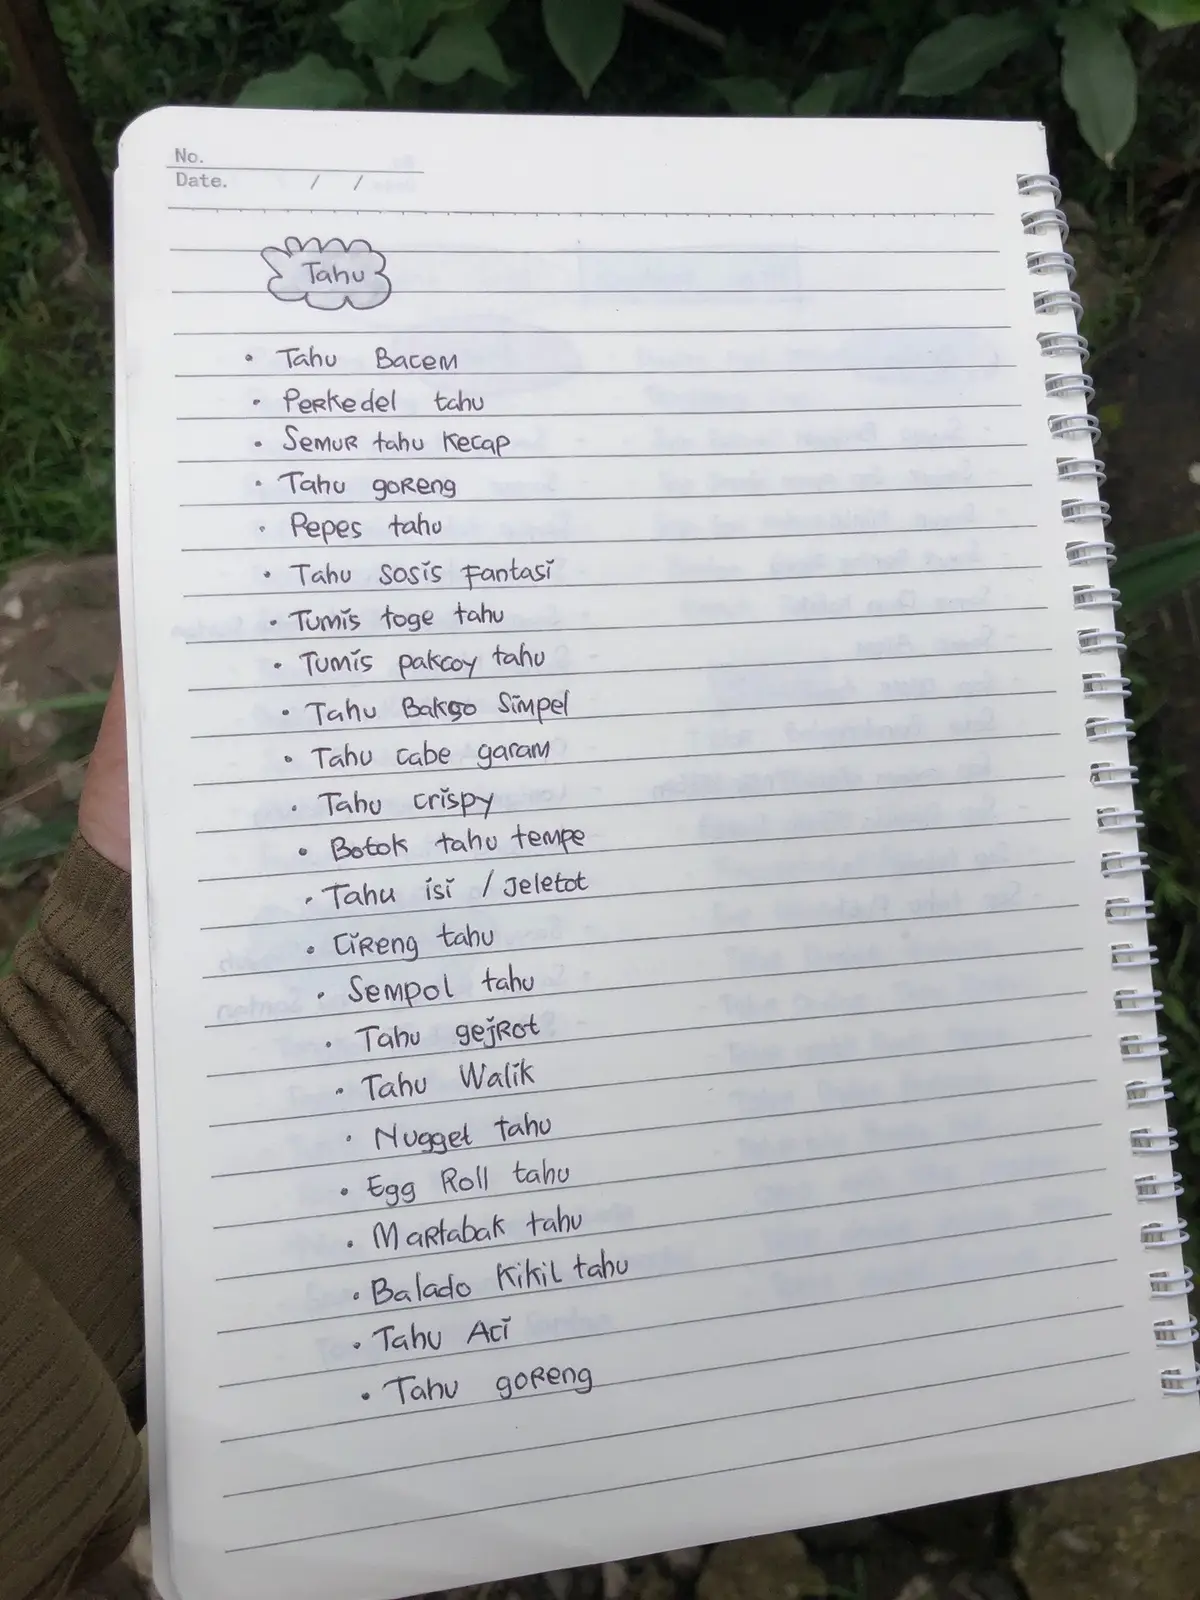 No.
Date. / /
Tahu
• Tahu Bacem
• Perkedel tahu
• Semur tahu kecap
• Tahu goreng
• Pepes tahu
• Tahu sosis Fantasi
• Tumis toge tahu
• Tumis pakcoy tahu
• Tahu Bakso Simpel
• Tahu cabe garam
• Tahu crispy
• Botok tahu tempe
• Tahu isi / Jeletot
• Cireng tahu
• Sempol tahu
• Tahu gejrot
• Tahu Walik
• Nugget tahu
• Egg Roll tahu
• Martabak tahu
• Balado Kikil tahu
• Tahu Aci
• Tahu goreng